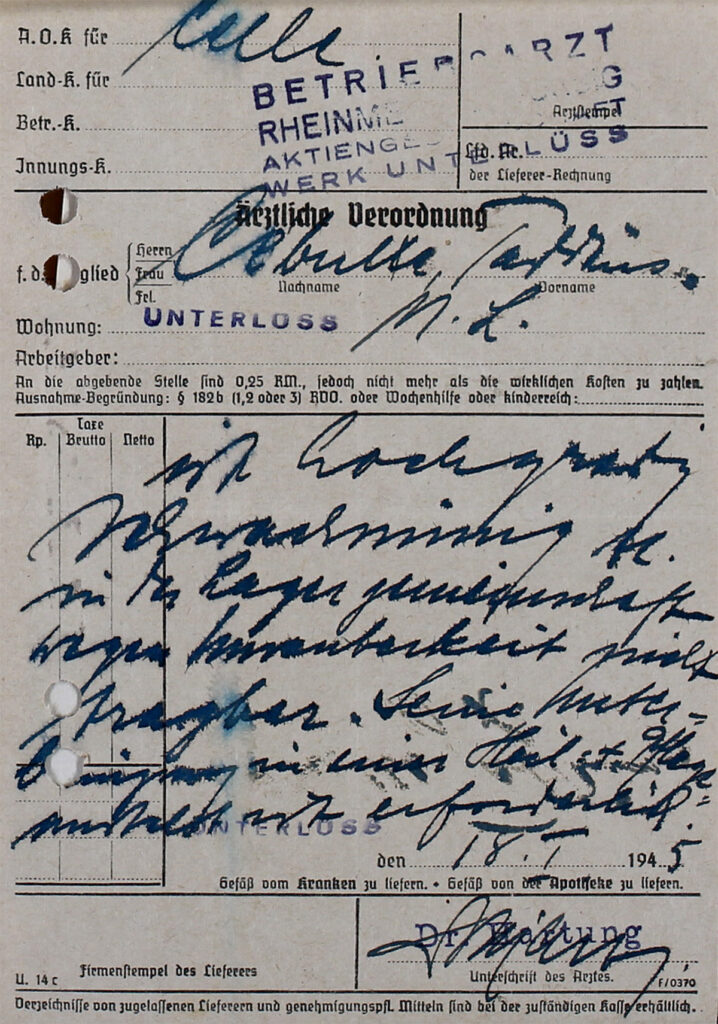 A.O.K für Celle
Land-K. für
Betr.-K.
Innungs-K.
BETRIEBSARZT
RHEINME
AKTIENGES
WERK UNTERLÜSS
Arztstempel
Lfd. Nr.
der Lieferer-Rechnung
Ärztliche Verordnung
f. d. glied
Herrn
Frau
Frl.
Nachname
Vorname
UNTERLÜSS
N. L.
Wohnung:
Arbeitgeber:
An die abgebende Stelle sind 0,25 RM., jedoch nicht mehr als die wirklichen Kosten zu zahlen.
Ausnahme-Begründung: § 182b (1,2 oder 3) RVO. oder Wochenhilfe oder kinderreich:
Rp.
Taxe
Brutto
Netto
ist hochgradig
schwachsinnig
in der Lagergemeinschaft
wegen Unsauberkeit nicht
tragbar. Seine Unter-
bringung in einer Heil- + Pflege-
anstalt ist erforderlich.
UNTERLÜSS
den 18. I. 1945
Gefäß vom Kranken zu liefern. • Gefäß von der Apotheke zu liefern.
Dr. Hartung
U. 14c
Firmenstempel des Lieferers
Unterschrift des Arztes.
F/0370
Verzeichnisse von zugelassenen Lieferern und genehmigungspfl. Mitteln sind bei der zuständigen Kasse erhältlich.